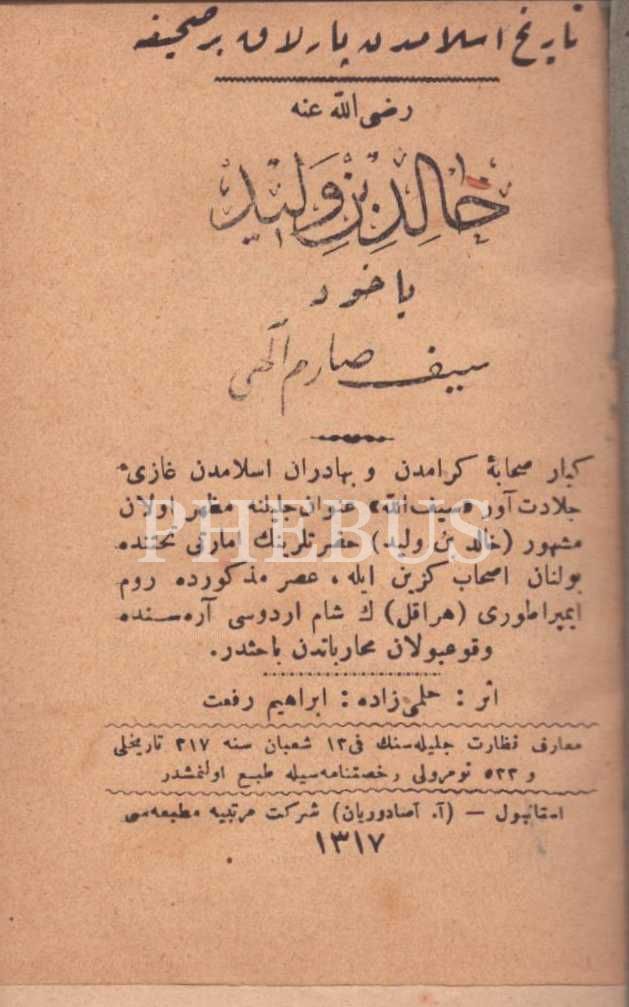 تاريخ اسلامدن پارلاق بر صحيفه
رضى الله عنه
خَالِدْ بِنْ وَلِيدْ
ياخود
سيف صارم الٓهى
كبار صحابهٔ كرامدن و بهادران اسلامدن غازىء
جلادت آور «سيف الله» عنوان جليلنه مظهر اولان
مشهور (خالد بن وليد) حضرتلرينك امارتى تحتنده
بولنان اصحاب كزين ايله ، عصر مذكورده روم
ايمپراطورى (هراقل) ك شام اردوسى آره سنده
وقوعبولان محارباتدن باحثدر.
اثر : حلمى زاده : ابراهيم رفعت
معارف نظارت جليله سنك فى ١٢ شعبان سنه ٣١٧ تاريخلى
و ٥٢٢ نومرولى رخصتنامه سيله طبع اولنمشدر
استانبول — (آ. آصادوريان) شركت مرتبيه مطبعه سى
١٣١٧
PHEBUS